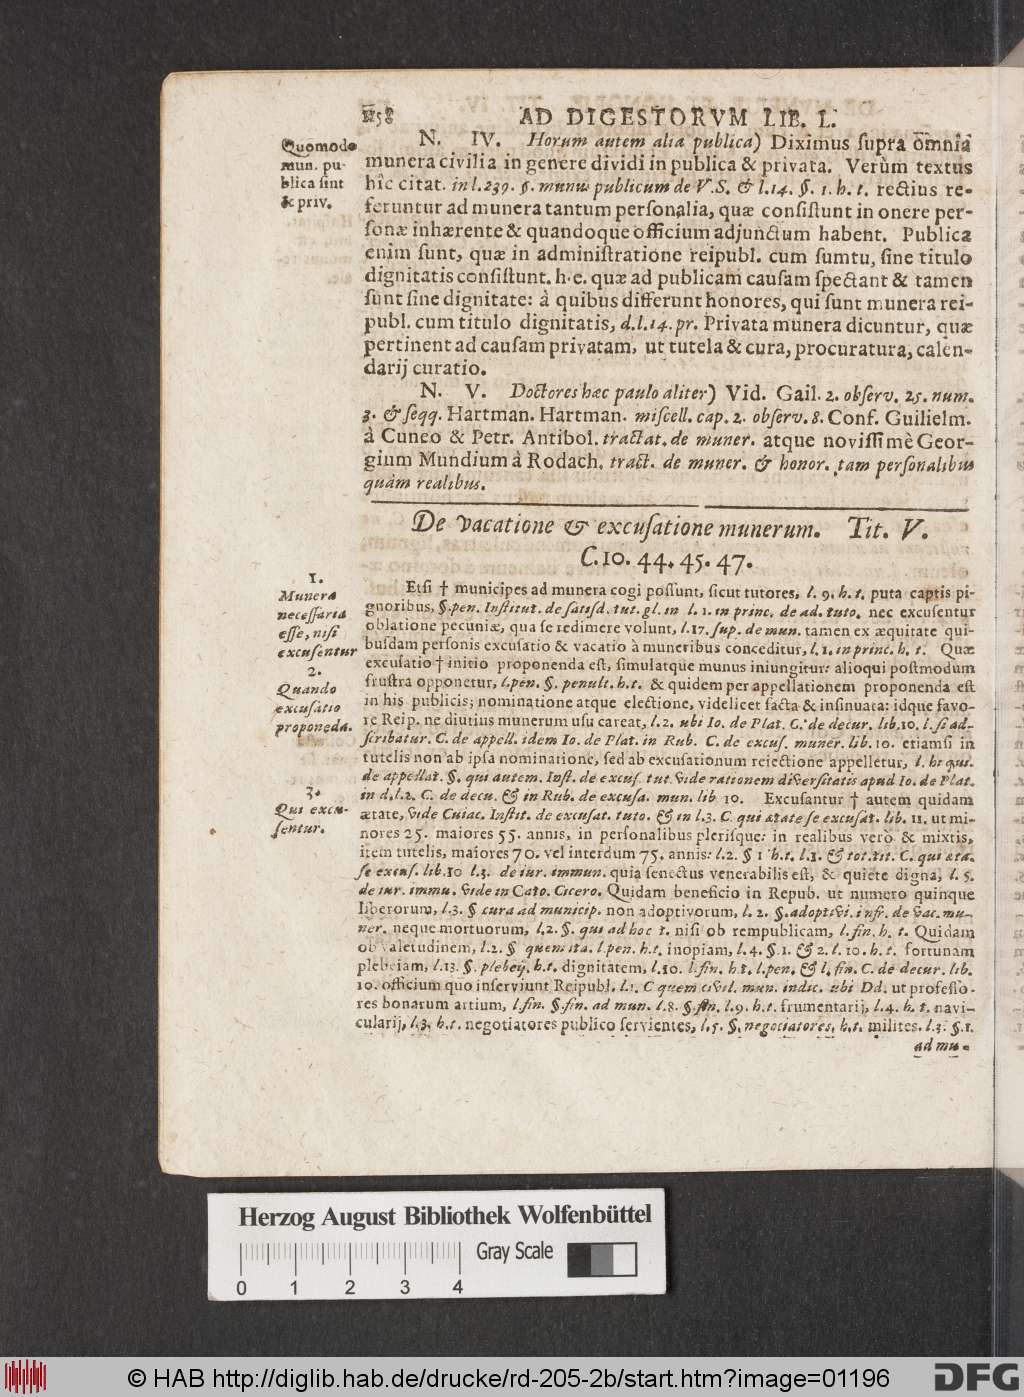 1158 AD DIGESTORVM LIB. L.
Quomodo
mun. pu-
blica sint
& priv.
N. IV. Horum autem alia publica) Diximus supra omnia
munera civilia in genere dividi in publica & privata. Verùm textus
hîc citat. in l. 239. §. munus publicum de V. S. & l. 14. §. 1. h. t. rectius re-
feruntur ad munera tantum personalia, quæ consistunt in onere per-
sonæ inhærente & quandoque officium adjunctum habent. Publica
enim sunt, quæ in administratione reipubl. cum sumtu, sine titulo
dignitatis consistunt. h. e. quæ ad publicam causam spectant & tamen
sunt sine dignitate: à quibus differunt honores, qui sunt munera rei-
publ. cum titulo dignitatis, d. l. 14. pr. Privata munera dicuntur, quæ
pertinent ad causam privatam, ut tutela & cura, procuratura, calen-
darij curatio.
N. V. Doctores hæc paulo aliter) Vid. Gail. 2. observ. 25. num.
3. & seqq. Hartman. Hartman. miscell. cap. 2. observ. 8. Conf. Guilielm.
à Cuneo & Petr. Antibol. tractat. de muner. atque novissimè Geor-
gium Mundium à Rodach. tract. de muner. & honor. tam personalibus
quàm realibus.
De vacatione & excusatione munerum. Tit. V.
C. 10. 44. 45. 47.
1.
Munera
necessaria
esse, nisi
excusentur
2.
Quando
excusatio
proponeda.
3.
Qui excu-
sentur.
Etsi † municipes ad munera cogi possunt, sicut tutores, l. 9. h. t. puta captis pi-
gnoribus, §. pen. Institut. de satisd. tut. gl. in l. 1. in princ. de ad. tuto. nec excusentur
oblatione pecuniæ, qua se redimere volunt, l. 17. sup. de mun. tamen ex æquitate qui-
busdam personis excusatio & vacatio à muneribus conceditur, l. 1. in princ. h. t. Quæ
excusatio † initio proponenda est, simulatque munus iniungitur: alioqui postmodum
frustra opponetur, l. pen. §. penult. h. t. & quidem per appellationem proponenda est
in his publicis; nominatione atque electione, videlicet facta & insinuata: idque favo-
re Reip. ne diutius munerum usu careat, l. 2. ubi Io. de Plat. C. de decur. lib. 10. l. si ad-
scribatur. C. de appell. idem Io. de Plat. in Rub. C. de excus. muner. lib. 10. etiamsi in
tutelis non ab ipsa nominatione, sed ab excusationum reiectione appelletur, l. hi qui.
de appellat. §. qui autem. Inst. de excus. tut. vide rationem diversitatis apud Io. de Plat.
in d. l. 2. C. de decu. & in Rub. de excusa. mun. lib 10. Excusantur † autem quidam
ætate, vide Cuiac. Instit. de excusat. tuto. & in l. 3. C. qui ætate se excusat. lib. 11. ut mi-
nores 25. maiores 55. annis, in personalibus plerisque: in realibus verò & mixtis,
item tutelis, maiores 70. vel interdum 75. annis: l. 2. § 1 h. t. l. 1. & tot. tit. C. qui æta.
se excus. lib. 10 l. 3. de iur. immun. quia senectus venerabilis est, & quiete digna, l. 5.
de iur. immu. vide in Cato. Cicero. Quidam beneficio in Repub. ut numero quinque
liberorum, l. 3. § cura ad municip. non adoptivorum, l. 2. §. adoptivi. infr. de vac. mu-
ner. neque mortuorum, l. 2. §. qui ad hoc t. nisi ob rempublicam, l. fin. h. t. Quidam
ob valetudinem, l. 2. § quem ita. l. pen. h. t. inopiam, l. 4. §. 1. & 2. l. 10. h. t. fortunam
plebeiam, l. 13. §. plebeij. h. t. dignitatem, l. 10. l. fin. h. t. l. pen. & l. fin. C. de decur. lib.
10. officium quo inserviunt Reipubl. l. 1. C quem civil. mun. indic. ubi Dd. ut professo-
res bonarum artium, l. fin. §. fin. ad mun. l. 8. §. fin. l. 9. h. t. frumentarij, l. 4. h. t. navi-
cularij, l. 3. h. t. negotiatores publico servientes, l. 5. §. negotiatores. h. t. milites. l. 3. §. 1.
ad mu-
Herzog August Bibliothek Wolfenbüttel
Gray Scale
0 1 2 3 4
© HAB http://diglib.hab.de/drucke/rd-205-2b/start.htm?image=01196
DFG